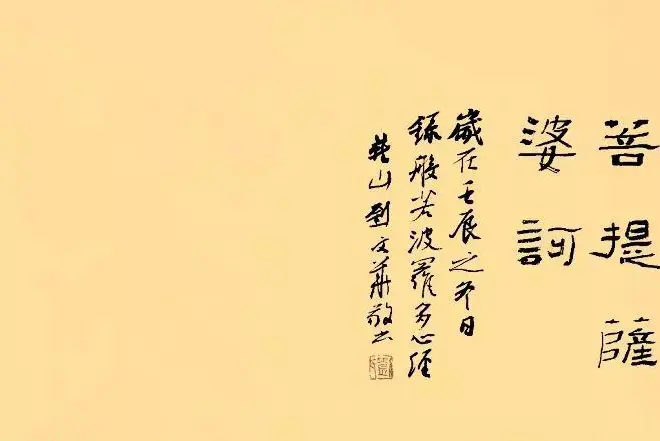 菩提薩
婆訶
歲在壬辰之冬日
録般若波羅多心經
楚山劉文敬書